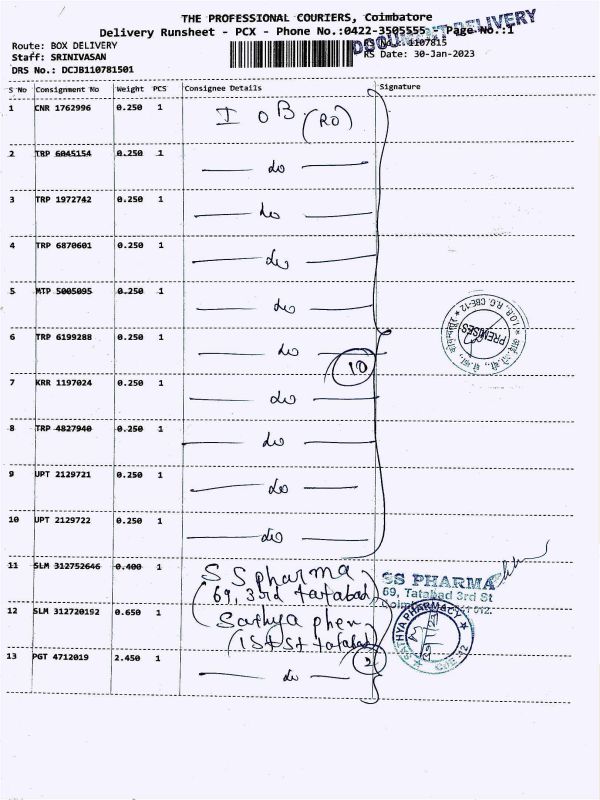 THE PROFESSIONAL COURIERS, Coimbatore
Delivery Runsheet - PCX - Phone No.:0422-3505555 Page No.:1
DOCUMENT DELIVERY
Route: BOX DELIVERY
RS No.: 1107815
Staff: SRINIVASAN
RS Date: 30-Jan-2023
DRS No.: DCJB110781501
S No Consignment No Weight PCS Consignee Details Signature
1 CNR 1762996 0.250 1 I O B (RO)
2 TRP 6045154 0.250 1 — do —
3 TRP 1972742 0.250 1 — do —
4 TRP 6870601 0.250 1 — do —
5 MTP 5005095 0.250 1 — do —
6 TRP 6199288 0.250 1 — do —
10
7 KRR 1197024 0.250 1 — do —
8 TRP 4827940 0.250 1 — do —
9 UPT 2129721 0.250 1 — do —
10 UPT 2129722 0.250 1 — do —
I.O.B., R.O. CBE-12
PREMISES
11 SLM 312752646 0.400 1 S S pharma
(69, 3rd tatabad)
SS PHARMA
69, Tatabad 3rd St
12 SLM 312720192 0.650 1 Sathya phar
(1st St tatabad)
2
SATHYA PHARMACY
CBE-12
13 PGT 4712019 2.450 1 — do —